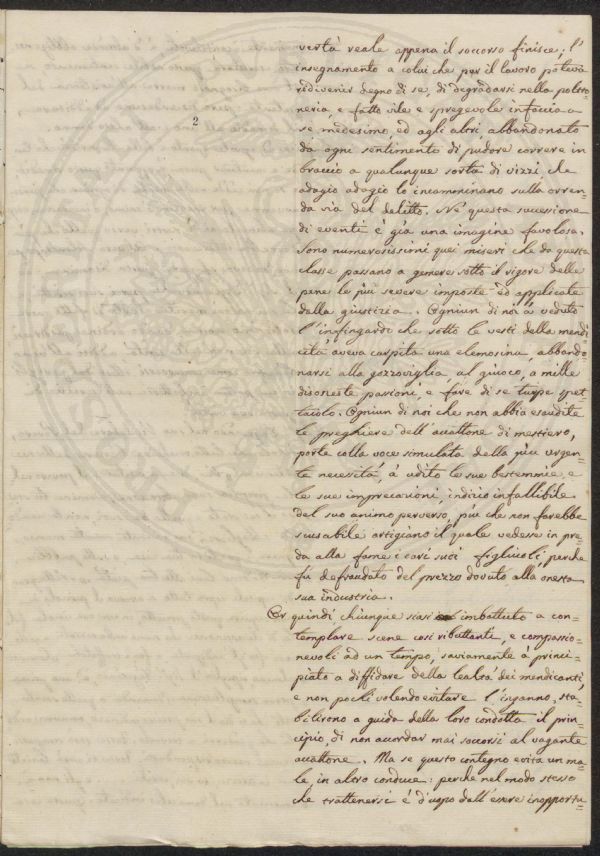 2
vertà reale appena il soccorso finisce; l'
insegnamento a colui che per il lavoro poteva
ridivenir degno di se, di degradarsi nella poltro=
neria, e fatto vile e spregevole in faccia a
se medesimo, ed agli altri, abbandonato
da ogni sentimento di pudore correre in
braccio a qualunque sorta di vizzi, che
adagio adagio lo incamminano sulla orren=
da via del delitto. Nè questa sucessione
di eventi è già una imagine favolosa.
Sono numerosissimi quei miseri che da questa
classe passano a gemere sotto il rigore delle
pene le più severe imposte ed applicate
dalla giustizia. Ogniun di noi à veduto
l'infingardo che sotto le vesti della mendi
cità aveva carpita una elemosina, abbando
narsi alla gozzoviglia, al giuoco, a mille
disoneste passioni, e fare di se turpe spet=
tacolo. Ogniun di noi che non abbia esaudite
le preghiere dell'accattone di mestiero,
porte colla voce simulata della più urgen=
te necessità, à udito le sue bestemmie, e
le sue imprecazioni, indizio infallibile
del suo animo perverso, più che non farebbe
scusabile artigiano il quale vedesse in pre=
da alla fame i cari suoi figliuoli, perche
fù defraudato del prezzo dovuto alla onesta
sua industria.
Or quindi, chiunque siasi imbattuto a con=
templare scene così ributtanti, e compassio=
nevoli ad un tempo, saviamente à princi=
piato a diffidare della lealtà dei mendicanti,
e non pochi volendo evitare l'inganno, sta=
bilirono a guida della loro condotta il prin=
cipio, di non accordar mai soccorsi al vagante
accattone. Ma se questo contegno evita un ma=
le in altro conduce: perchè nel modo stesso
che trattenersi è d'uopo dall'essere inopportu=